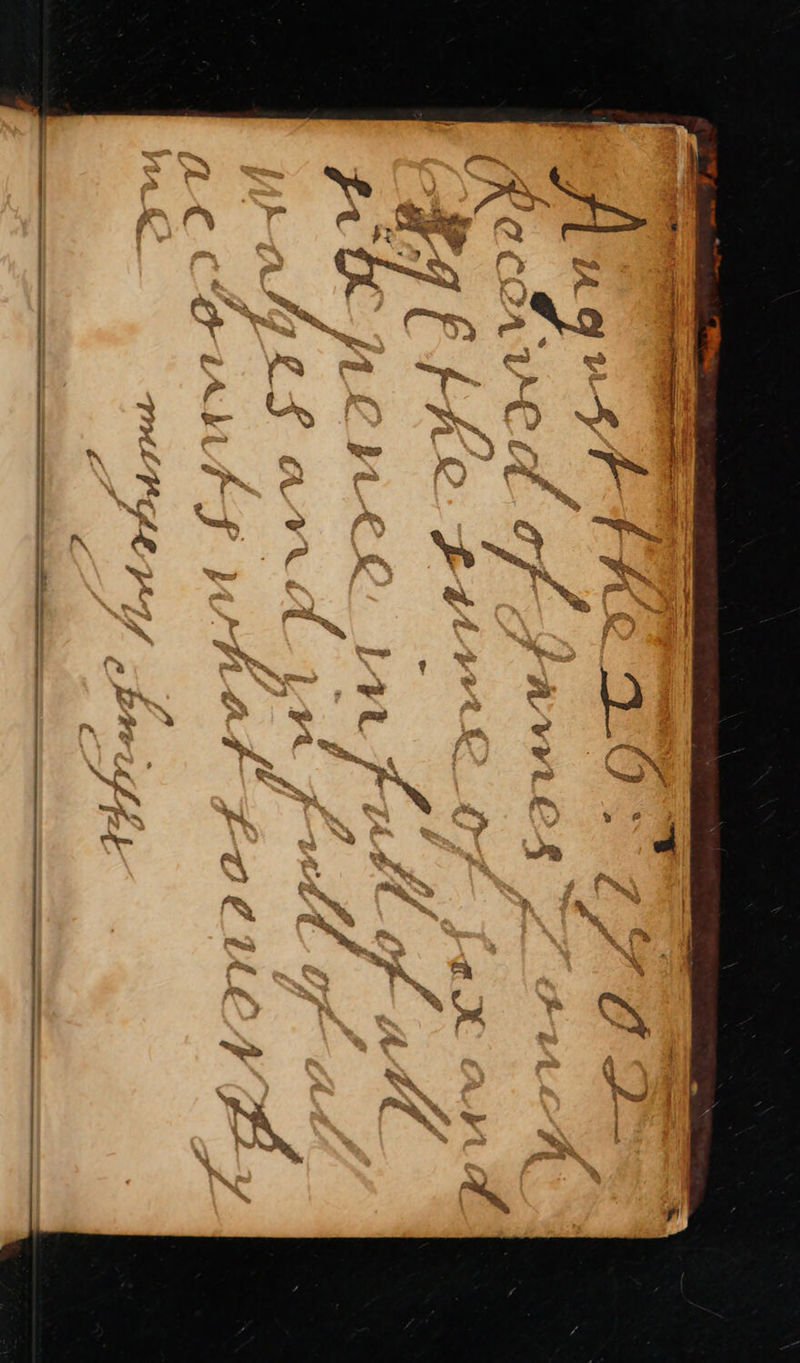 August the 26: 1702
Received of James Touch
Esqr the sume of sixand
sixpence in full of all
wages and in full of all
accounts whatsoever By
me
margery Smithe